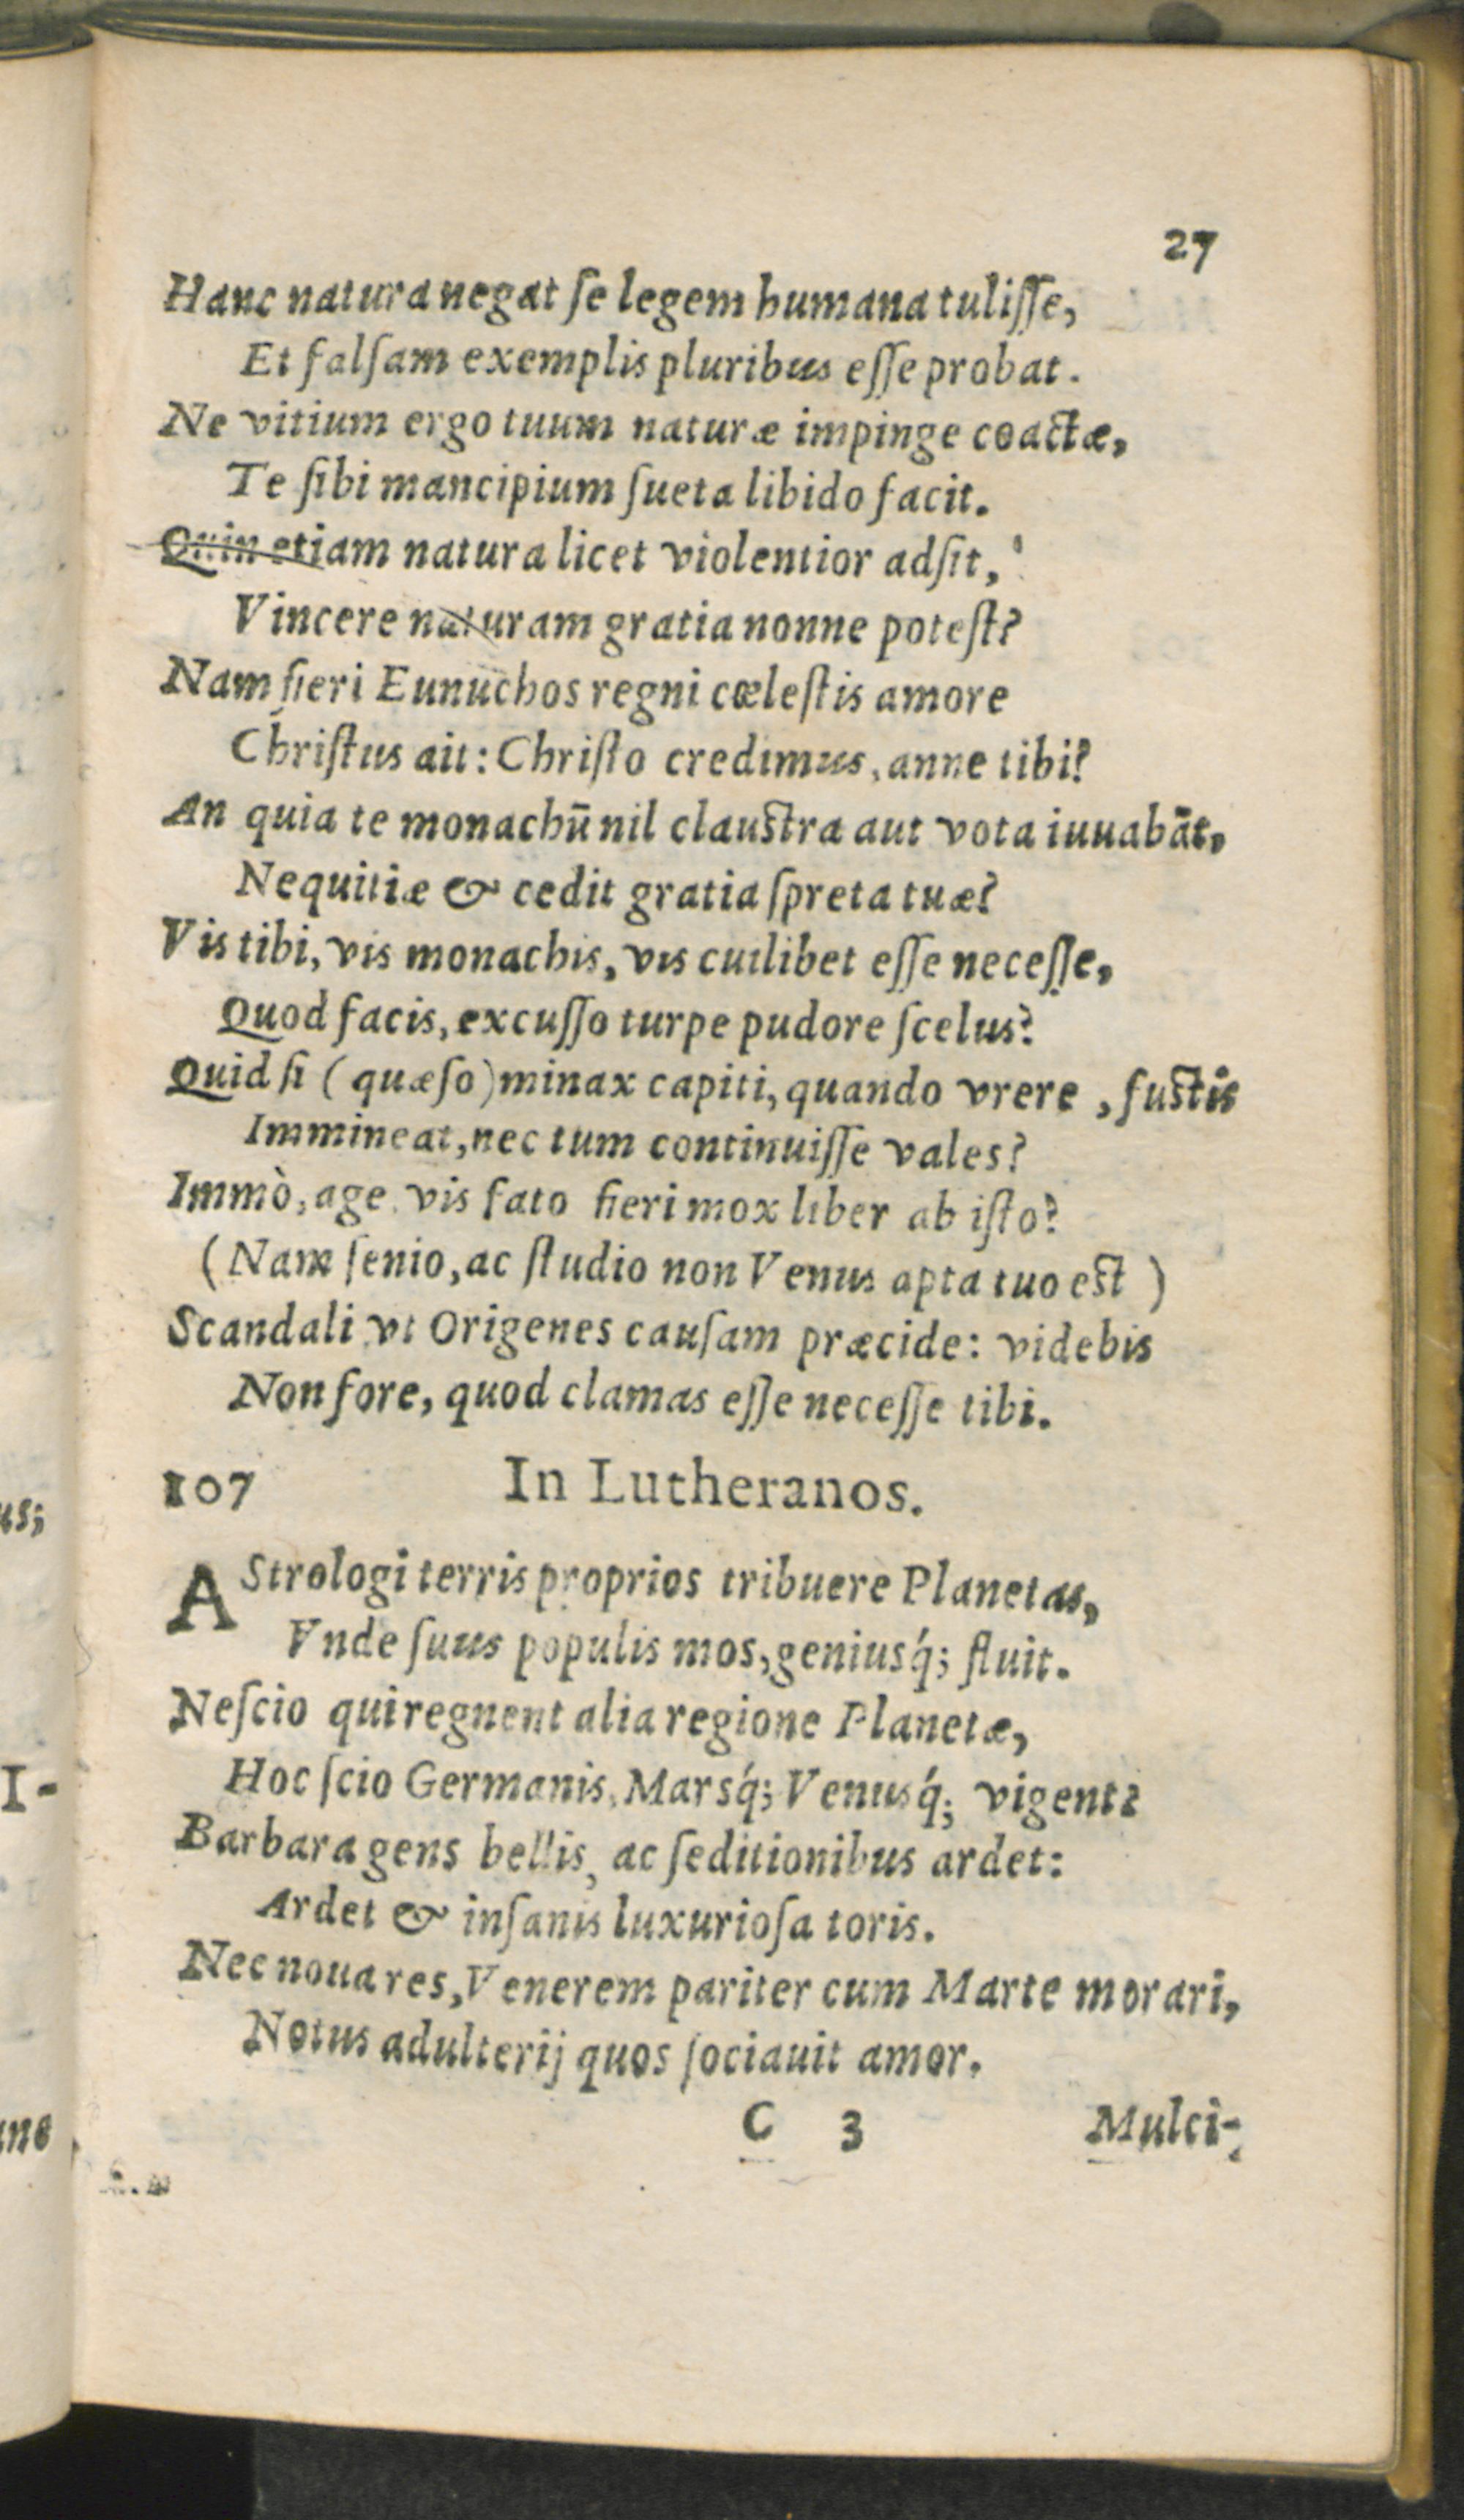 27
Hanc natura negat ſe legem humana tuliſſe,
Et falſam exemplis pluribus eſſe probat.
Ne vitium ergo tuum naturæ impinge coactæ,
Te ſibi mancipium ſueta libido facit.
Quin etiam natura licet violentior adſit,
Vincere naturam gratia nonne poteſt?
Nam fieri Eunuchos regni cœleſtis amore
Chriſtus ait: Chriſto credimus, anne tibi?
An quia te monachū nil clauſtra aut vota iuuabāt,
Nequitiæ & cedit gratia ſpreta tuæ?
Vis tibi, vis monachis, vis cuilibet eſſe neceſſe,
Quod facis, excuſſo turpe pudore ſcelus?
Quid ſi (quæſo) minax capiti, quando vrere, fuſtis
Immineat, nec tum continuiſſe vales?
Immò, age, vis fato fieri mox liber ab iſto?
(Nam ſenio, ac ſtudio non Venus apta tuo eſt)
Scandali vt Origenes cauſam præcide: videbis
Non fore, quod clamas eſſe neceſſe tibi.
107 In Lutheranos.
AStrologi terris proprios tribuere Planetas,
Vnde ſuus populis mos, geniusq́; fluit.
Neſcio qui regnent alia regione Planetæ,
Hoc ſcio Germanis, Marsq́; Venusq́; vigent?
Barbara gens bellis, ac ſeditionibus ardet:
Ardet & inſanis luxurioſa toris.
Nec noua res, Venerem pariter cum Marte morari,
Notus adulterij quos ſociauit amor.
C 3 Mulci-
us;
I-